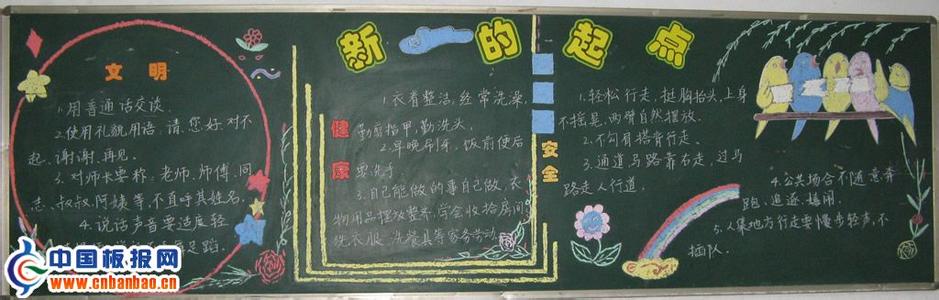 新的起点
文明
1.用普通话交谈.
2.使用礼貌用语,请、您好、对不
起、谢谢、再见。
3.对师长要称:老师、师傅、同
志、叔叔、阿姨等,不直呼其姓名。
4.说话声音要适度轻
足蹈.
健康
1.衣着整洁,经常洗澡,
勤剪指甲,勤洗头。
2.早晚刷牙、饭前便后
要洗手
3.自己能做的事自己做,衣
物用品摆放整齐,学会收拾房间
洗衣服、洗餐具等家务劳动.
安全
1.轻松行走,挺胸抬头,上身
不摇晃,两臂自然摆放。
2.不勾肩搭背行走。
3.通道马路靠右走,过马
路走人行道.
4.公共场合不随意奔
跑、追逐、嬉闹.
5.人集地方行走要慢步轻声,不
插队.
中国板报网
www.cnbanbao.cn